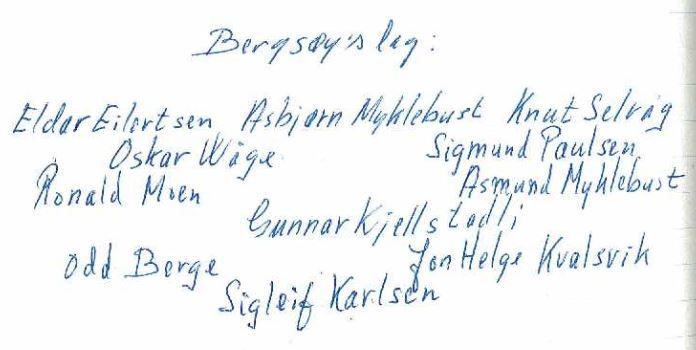 Bergsøy's lag:
Eldar Eilertsen Asbjørn Myklebust Knut Selvåg
Oskar Wåge Sigmund Paulsen
Ronald Moen Asmund Myklebust
Gunnar Kjellstadli
Odd Berge Jon Helge Kvalsvik
Sigleif Karlsen